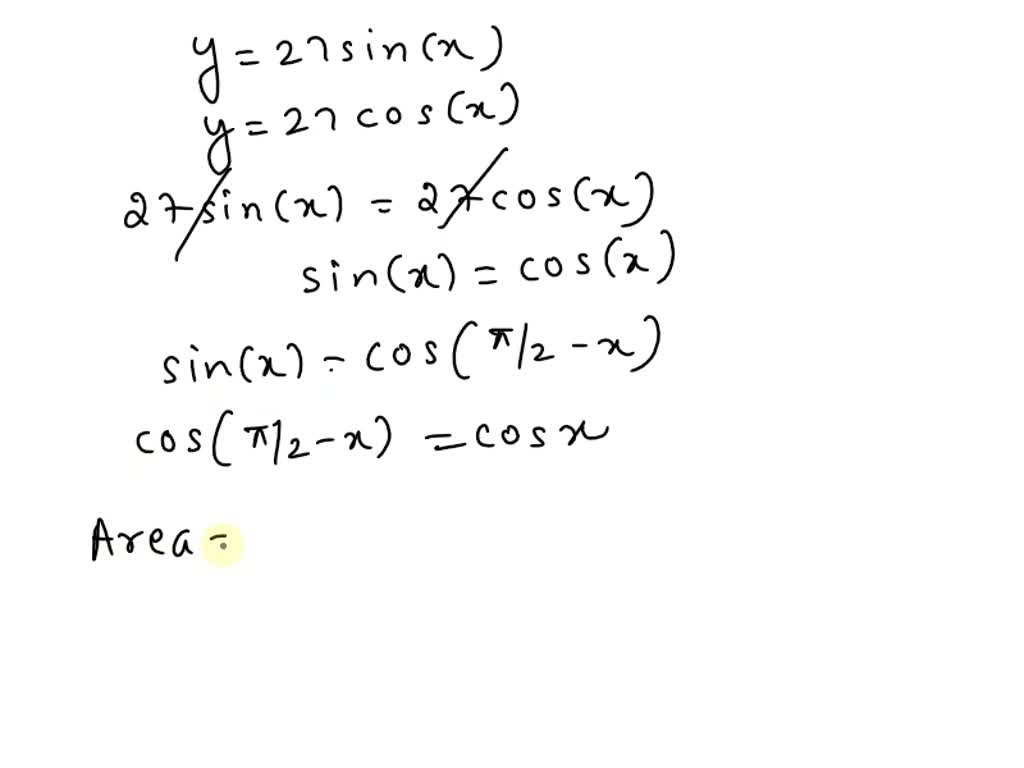 y = 27 sin(x)
y = 27 cos(x)
27 sin(x) = 27 cos(x)
sin(x) = cos(x)
sin(x) = cos(π/2 - x)
cos(π/2 - x) = cos x
Area =